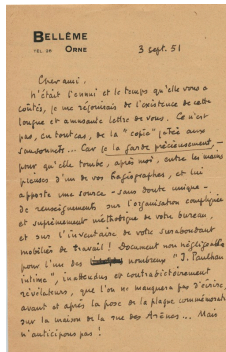 BELLÊME
TÉL 28 ORNE
3 sept. 51
Cher ami.
N'était l'ennui et le temps qu'elle vous a
coûtés, je me réjouirais de l'existence de cette
longue et amusante lettre de vous. Ce n'est
pas, en tout cas, de la "copie" jetée aux
... Car je la garde précieusement,
pour qu'elle tombe, après moi, entre les mains
pieuses d'un de vos hagiographes, et lui
apporte une source - sans doute unique -
de renseignements sur l'organisation compliquée
et suprêmement méthodique de votre bureau,
et sur l'inventaire de votre surabondant
mobilier de travail ! Document non négligeable
pour l'un des nombreux "J. Paulhan
intime", inattendus et contradictoirement
révélateurs, que l'on ne manquera pas d'écrire,
avant et après la pose de la plaque commémorative
sur la maison de la rue des Arènes... Mais
n'anticipons pas !